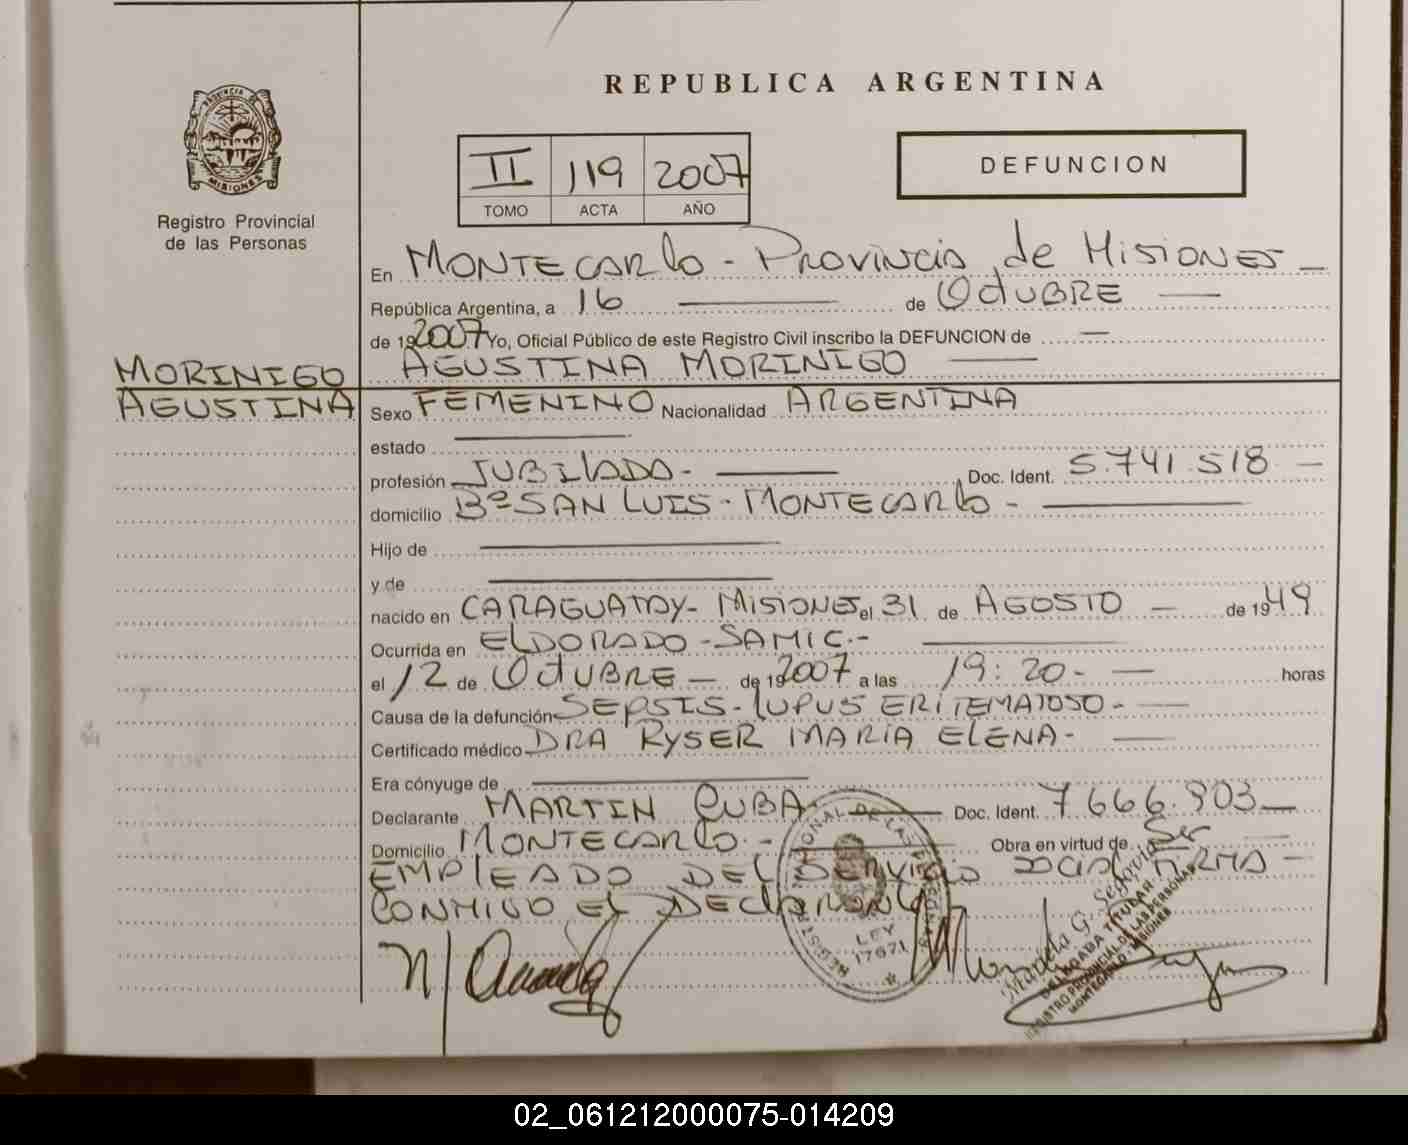 REPUBLICA ARGENTINA
PROVINCIA DE
MISIONES
Registro Provincial
de las Personas
II 119 2007
TOMO ACTA AÑO
DEFUNCION
En MONTECARLO - PROVINCIA de MISIONES
República Argentina, a 16 de OCTUBRE
de 192007 Yo, Oficial Público de este Registro Civil inscribo la DEFUNCION de
AGUSTINA MORINIGO
MORINIGO
AGUSTINA
Sexo FEMENINO Nacionalidad ARGENTINA
estado
profesión JUBILADA- Doc. Ident. 5.741.518
domicilio Bº SAN LUIS - MONTECARLO -
Hijo de
y de
nacido en CARAGUATAY- MISIONES el 31 de AGOSTO de 1949
Ocurrida en ELDORADO - SAMIC.-
el 12 de OCTUBRE de 192007 a las 19:20- horas
Causa de la defunción SEPSIS - LUPUS ERITEMATOSO-
Certificado médico DRA RYSER MARIA ELENA-
Era cónyuge de
Declarante MARTIN Doc. Ident. 7.666.903
Domicilio MONTECARLO - Obra en virtud de Ser
EMPLEADO DEL SERVICIO SOCIAL FIRMA -
CONMIGO EL DECLARANTE
LEY
17671
Marcela G. Segovia
DELEGADA TITULAR
REGISTRO PROVINCIAL DE LAS PERSONAS
MONTECARLO - MISIONES
02_061212000075-014209